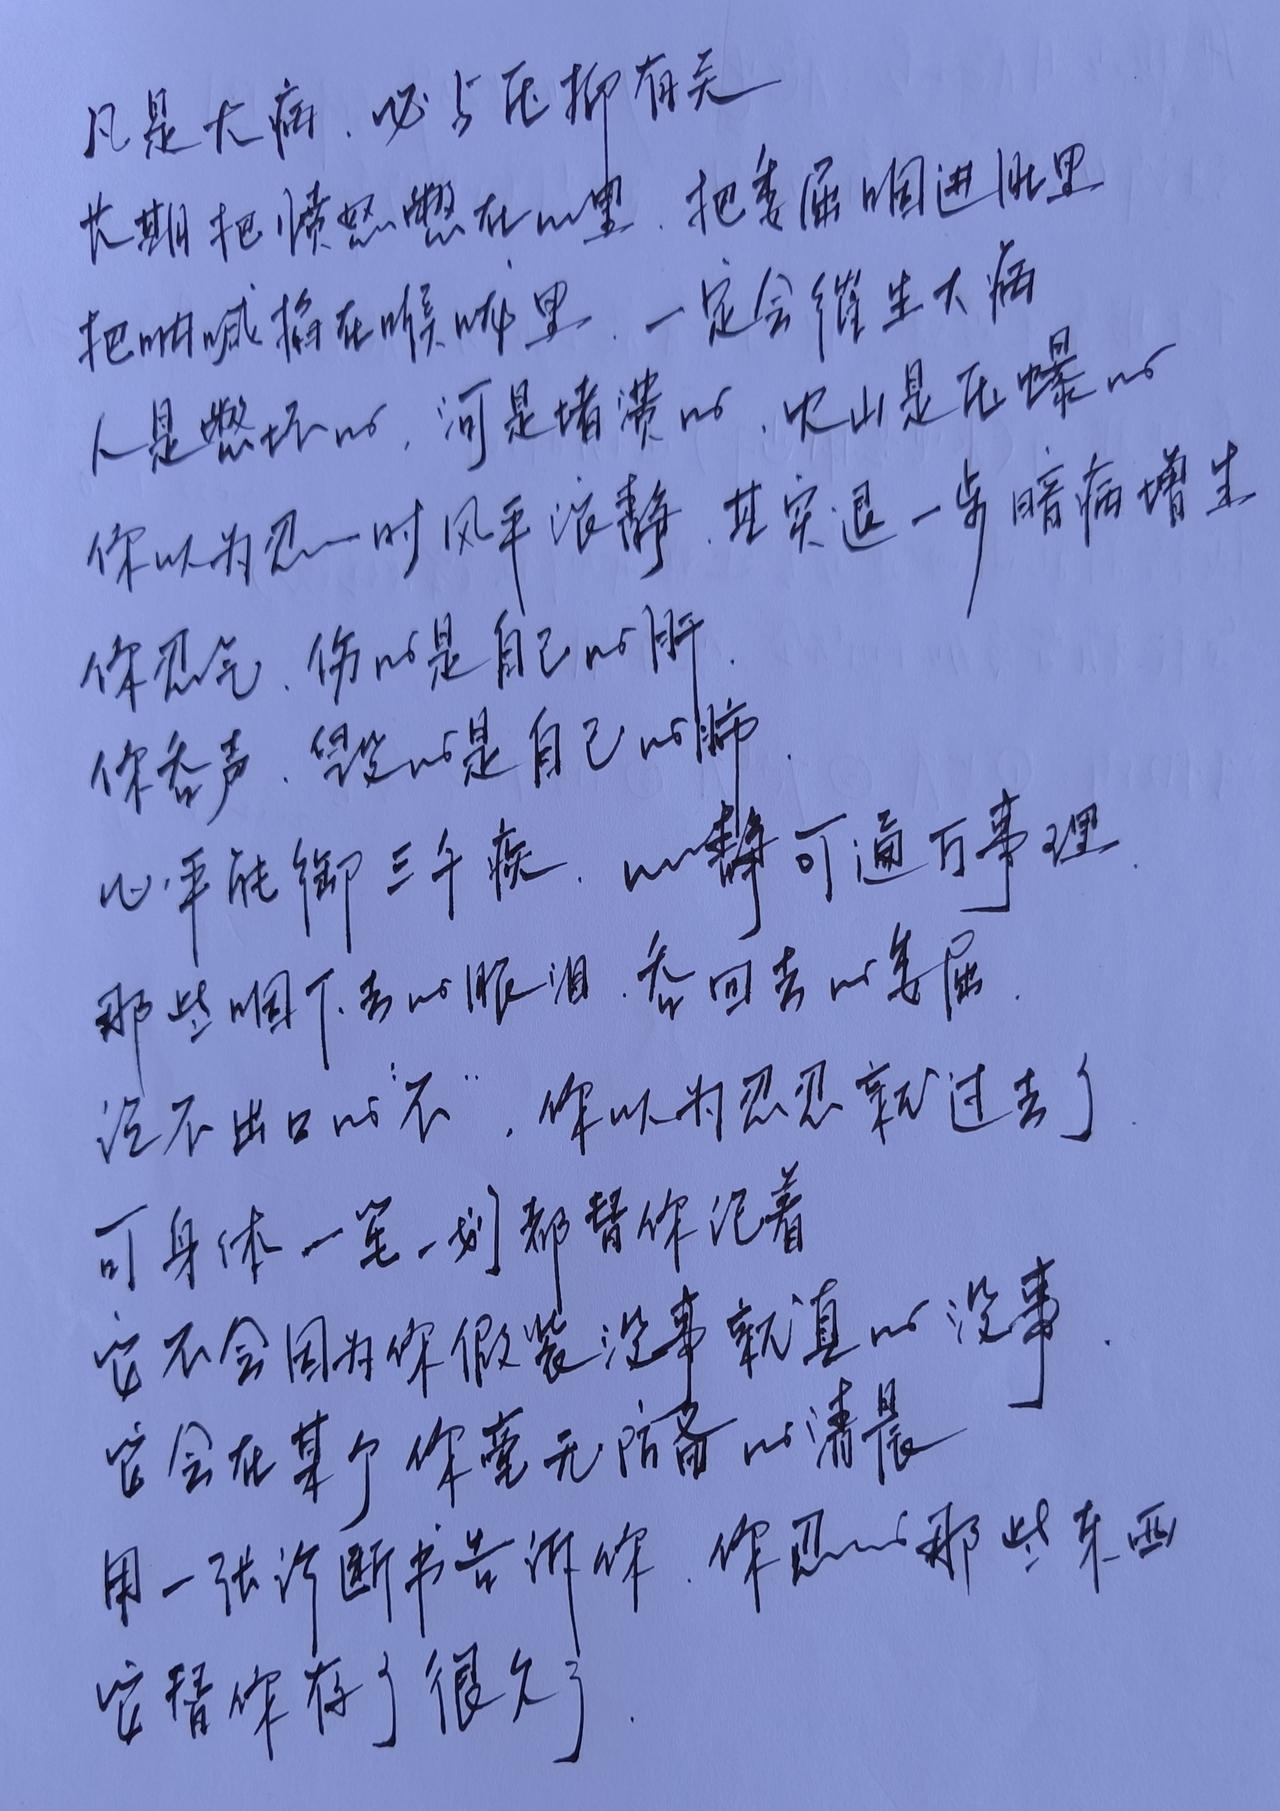 凡是大病.必与压抑有关
长期把愤怒憋在心里.把委屈咽进肚里
把呐喊掐在喉咙里.一定会催生大病
人是憋坏的.河是堵溃的.火山是压爆的
你以为忍一时风平浪静.其实退一步暗病增生
你忍气.伤的是自己的肝.
你吞声.毁的是自己的肺.
心平能御三千疾.心静可通万事理.
那些咽下去的眼泪.吞回去的委屈.
说不出口的"不".你以为忍忍就过去了.
可身体一笔一划都替你记着
它不会因为你假装没事就真的没事.
它会在某个你毫无防备的清晨
用一张诊断书告诉你.你忍的那些东西
它替你存了很久了.